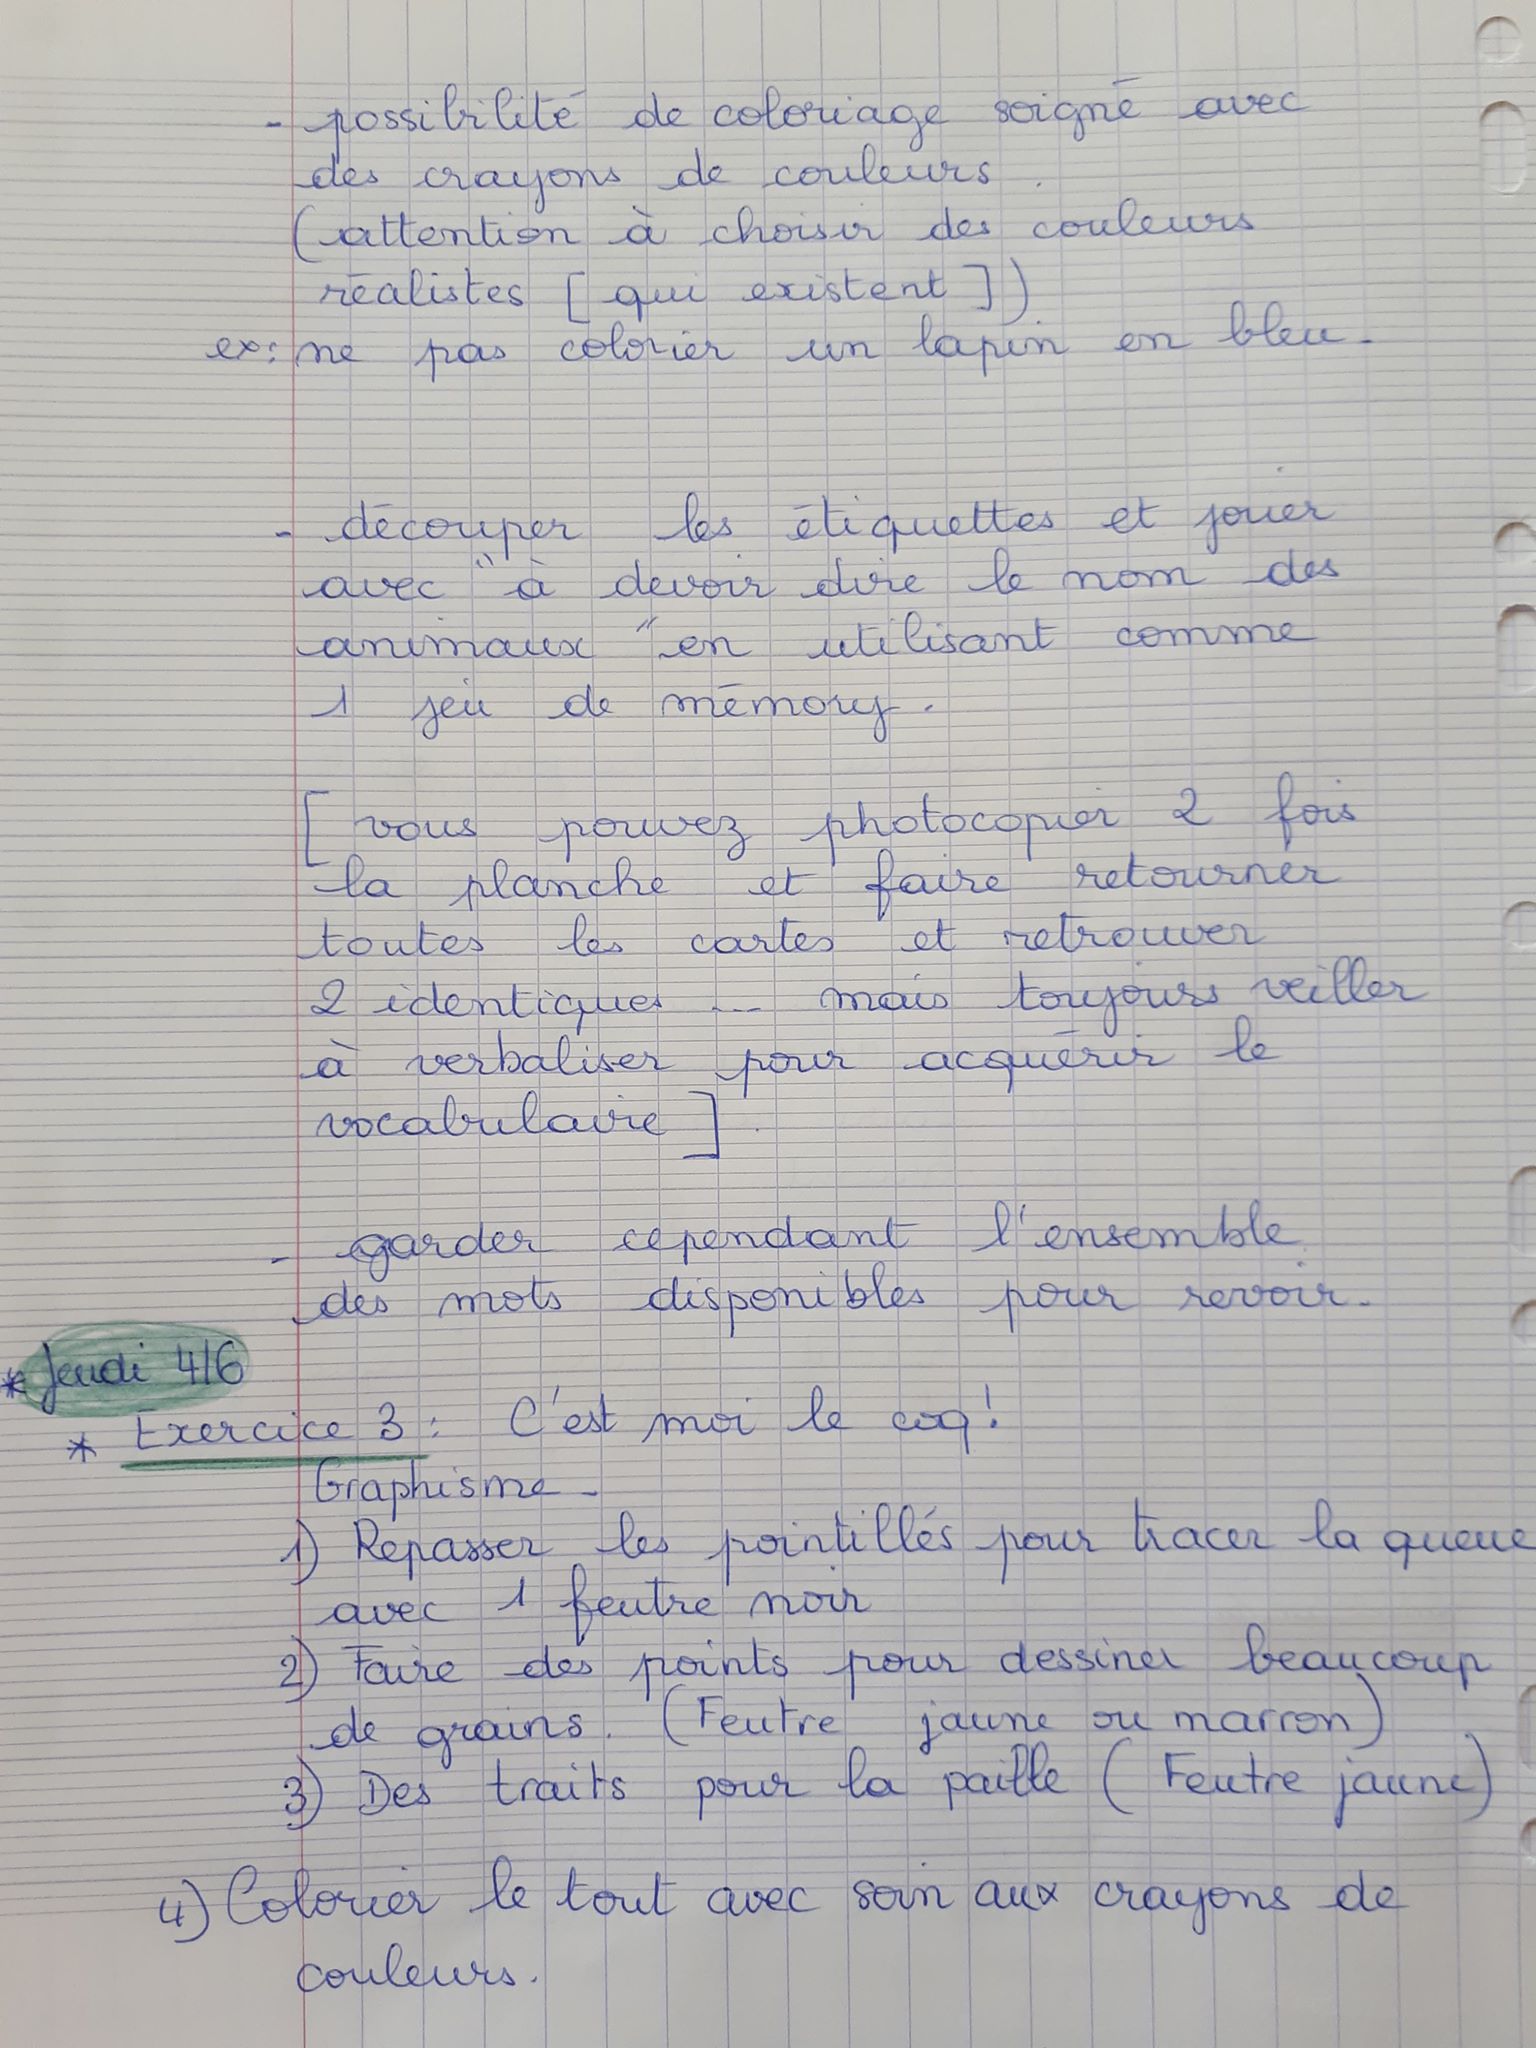 - possibilité de coloriage soigné avec
des crayons de couleurs.
(attention à choisir des couleurs
réalistes [qui existent])
ex: ne pas colorier un lapin en bleu.
- découper les étiquettes et jouer
avec "à devoir dire le nom des
animaux" en utilisant comme
1 jeu de mémory.
[vous pouvez photocopier 2 fois
la planche et faire retourner
toutes les cartes et retrouver
2 identiques ... mais toujours veiller
à verbaliser pour acquérir le
vocabulaire].
- garder cependant l'ensemble
des mots disponibles pour revoir.
* Jeudi 4/6
* Exercice 3 : C'est moi le coq!
Graphisme -
1) Repasser les pointillés pour tracer la queue
avec 1 feutre noir
2) Faire des points pour dessiner beaucoup
de grains. (Feutre jaune ou marron)
3) Des traits pour la paille (Feutre jaune)
4) Colorier le tout avec soin aux crayons de
couleurs.